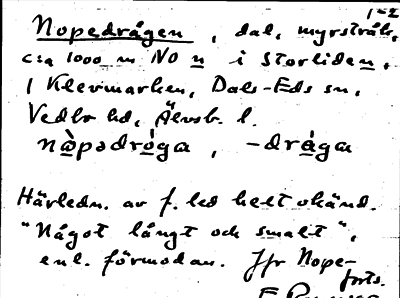 1-2
Nopedrågen, dal, myrstråk,
c:a 1000 m NO n i Storliden,
1 Klevmarken, Dals-Eds sn,
Vedbo hd, Älvsb. l.
nàpədróga, -dråga
Härledn. av f. led helt okänd.
"Något långt och smalt",
enl. förmodan. Jfr Nope-
forts.